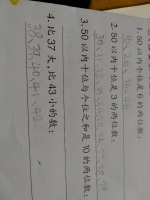 1.50以内个位是6的两位数:
2.50以内十位是3的两位数:
3.50以内十位与个位之和是10的两位数:
4.比37大,比43小的数:
38,39,40,41,42